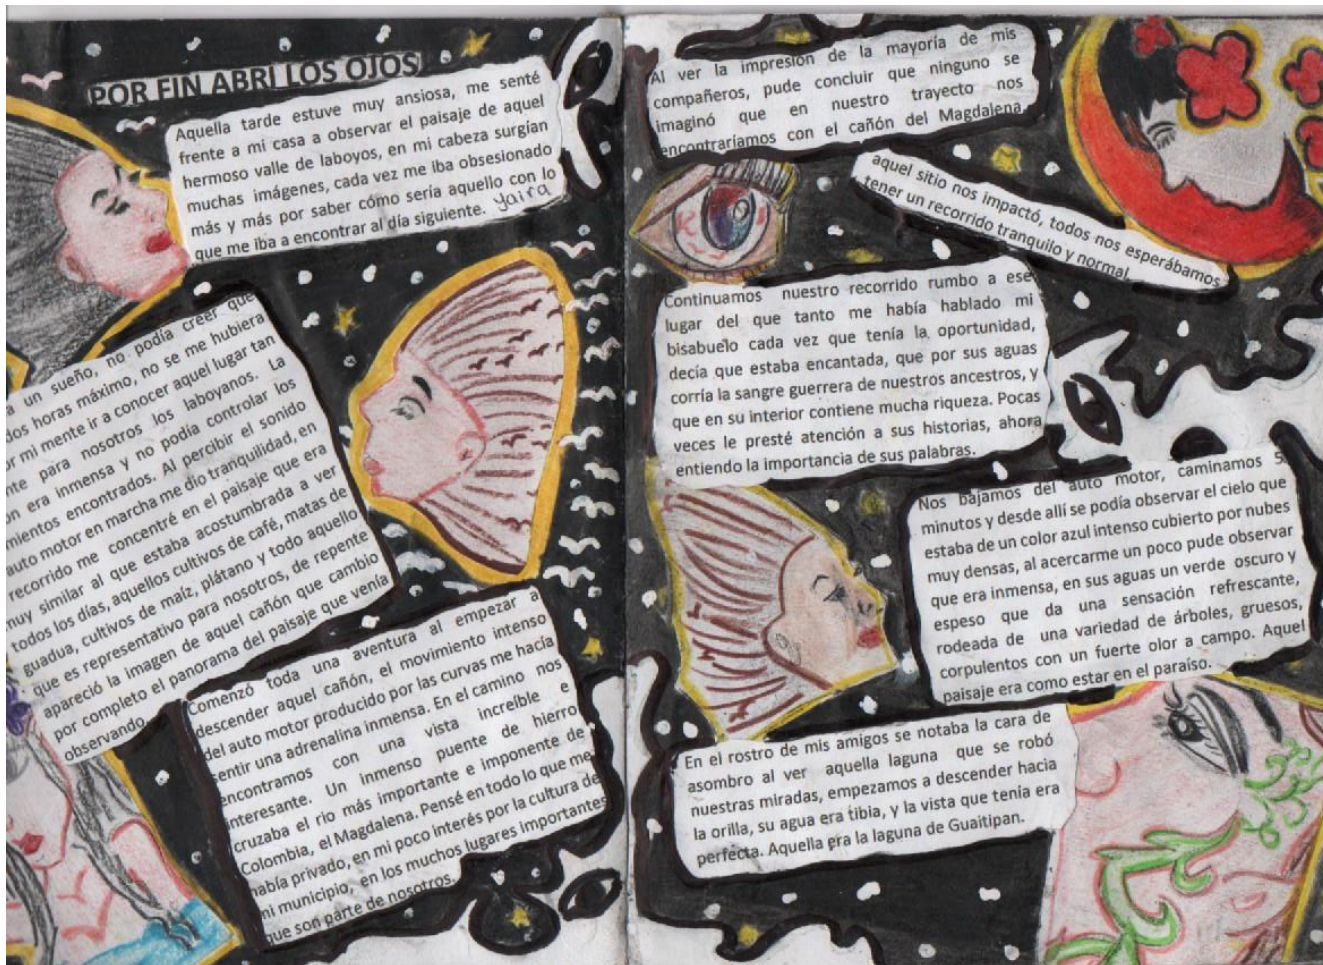 POR FIN ABRI LOS OJOS
Aquella tarde estuve muy ansiosa, me senté
frente a mi casa a observar el paisaje de aquel
hermoso valle de laboyos, en mi cabeza surgían
muchas imágenes, cada vez me iba obsesionado
más y más por saber cómo sería aquello con lo
que me iba a encontrar al día siguiente. Yaira
a un sueño, no podía creer que
dos horas máximo, no se me hubiera
or mi mente ir a conocer aquel lugar tan
nte para nosotros los laboyanos. La
on era inmensa y no podía controlar los
mientos encontrados. Al percibir el sonido
auto motor en marcha me dio tranquilidad, en
recorrido me concentré en el paisaje que era
muy similar al que estaba acostumbrada a ver
todos los días, aquellos cultivos de café, matas de
guadua, cultivos de maíz, plátano y todo aquello
que es representativo para nosotros, de repente
apareció la imagen de aquel cañón que cambio
por completo el panorama del paisaje que venía
observando.
Comenzó toda una aventura al empezar a
descender aquel cañón, el movimiento intenso
del auto motor producido por las curvas me hacía
sentir una adrenalina inmensa. En el camino nos
encontramos con una vista increíble e
interesante. Un inmenso puente de hierro
cruzaba el río más importante e imponente de
Colombia, el Magdalena. Pensé en todo lo que me
había privado, en mi poco interés por la cultura de
mi municipio, en los muchos lugares importantes
que son parte de nosotros.
Al ver la impresión de la mayoría de mis
compañeros, pude concluir que ninguno se
imaginó que en nuestro trayecto nos
encontraríamos con el cañón del Magdalena,
aquel sitio nos impactó, todos nos esperábamos
tener un recorrido tranquilo y normal.
Continuamos nuestro recorrido rumbo a ese
lugar del que tanto me había hablado mi
bisabuelo cada vez que tenía la oportunidad,
decía que estaba encantada, que por sus aguas
corría la sangre guerrera de nuestros ancestros, y
que en su interior contiene mucha riqueza. Pocas
veces le presté atención a sus historias, ahora
entiendo la importancia de sus palabras.
Nos bajamos del auto motor, caminamos 5
minutos y desde allí se podía observar el cielo que
estaba de un color azul intenso cubierto por nubes
muy densas, al acercarme un poco pude observar
que era inmensa, en sus aguas un verde oscuro y
espeso que da una sensación refrescante,
rodeada de una variedad de árboles, gruesos,
corpulentos con un fuerte olor a campo. Aquel
paisaje era como estar en el paraíso.
En el rostro de mis amigos se notaba la cara de
asombro al ver aquella laguna que se robó
nuestras miradas, empezamos a descender hacia
la orilla, su agua era tibia, y la vista que tenía era
perfecta. Aquella era la laguna de Guaitipan.